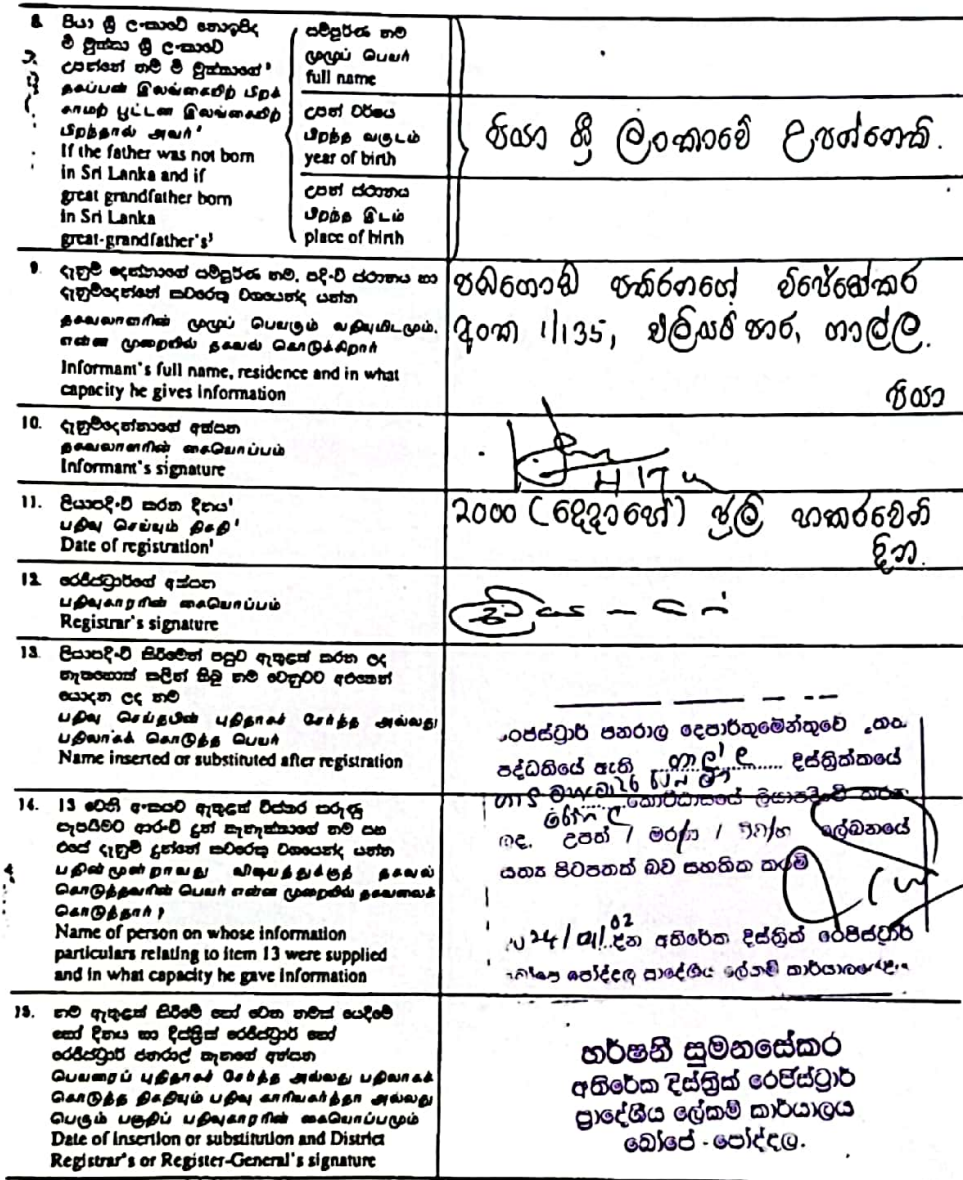 8. පියා ශ්‍රී ලංකාවේ නොඉපිද
මී මුත්තා ශ්‍රී ලංකාවේ
උපන්නේ නම් මී මුත්තාගේ'
தகப்பன் இலங்கையிற் பிறக்
காமற் பூட்டன இலங்கையிற்
பிறந்தால் அவர்'
If the father was not born
in Sri Lanka and if
great grandfather born
in Sri Lanka
great-grandfather's³
සම්පූර්ණ නම
முழுப் பெயர்
full name
උපන් වර්ෂය
பிறந்த வருடம்
year of birth
උපන් ස්ථානය
பிறந்த இடம்
place of birth
පියා ශ්‍රී ලංකාවේ උපන්නෙකි.
9. දැනුම් දෙන්නාගේ සම්පූර්ණ නම, පදිංචි ස්ථානය හා
දැනුම්දෙන්නේ කවරෙකු වශයෙන්ද යන්න
தகவலாளரின் முழுப் பெயரும் வதியுமிடமும்,
என்ன முறையில் தகவல் கொடுக்கிறார்
Informant's full name, residence and in what
capacity he gives information
පතිරනගේ
අංක 1/135, පාර, ගාල්ල.
පියා
10. දැනුම්දෙන්නාගේ අත්සන
தகவலாளரின் கையொப்பம்
Informant's signature
11. ලියාපදිංචි කරන දිනය'
பதிவு செய்யும் திகதி'
Date of registration'
2000 (දෙදාහේ) ජූලි හතරවෙනි
දින.
12. රෙජිස්ට්‍රාර්ගේ අත්සන
பதிவுகாரரின் கையொப்பம்
Registrar's signature
13. ලියාපදිංචි කිරීමෙන් පසුව ඇතුළත් කරන ලද
නැතහොත් කලින් තිබූ නම වෙනුවට අරගෙන්
යොදන ලද නම
பதிவு செய்தபின் புதிதாகச் சேர்த்த அல்லது
பதிலாகக் கொடுத்த பெயர்
Name inserted or substituted after registration
රෙජිස්ට්‍රාර් ජනරාල දෙපාර්තුමේන්තුවේ
පද්ධතියේ ඇති ගාල්ල දිස්ත්‍රික්කයේ
කොට්ඨාසයේ ලියාපදිංචි කරන
ලද. උපත් / මරණ / විවාහ ලේඛනයේ
සත්‍ය පිටපතක් බව සහතික කරමි
24/01/02 දින අතිරේක දිස්ත්‍රික් රෙජිස්ට්‍රාර්
පෝද්දල ප්‍රාදේශීය ලේකම් කාර්යාලයේදී
14. 13 වෙනි අංකයට ඇතුළත් විස්තර කරුණු
සැපයීමට ආරංචි දුන් තැනැත්තාගේ නම සහ
එසේ දැනුම් දුන්නේ කවරෙකු වශයෙන්ද යන්න
பதின்மூன்றாவது விஷயத்துக்குத் தகவல்
கொடுத்தவரின் பெயர் என்ன முறையில் தகவலைக்
கொடுத்தார்?
Name of person on whose information
particulars relating to item 13 were supplied
and in what capacity he gave information
15. නම ඇතුළත් කිරීමේ හෝ වෙන නමක් යෙදීමේ
හෝ දිනය හා දිස්ත්‍රික් රෙජිස්ට්‍රාර් හෝ
රෙජිස්ට්‍රාර් ජනරාල් තැනගේ අත්සන
பெயரைப் புதிதாகச் சேர்த்த அல்லது பதிலாகக்
கொடுத்த திகதியும் பதிவு காரியகர்த்தா அல்லது
பெரும் பகுதிப் பதிவுகாரரின் கையொப்பமும்
Date of insertion or substitution and District
Registrar's or Register-General's signature
හර්ෂනී සුමනසේකර
අතිරේක දිස්ත්‍රික් රෙජිස්ට්‍රාර්
ප්‍රාදේශීය ලේකම් කාර්යාලය
බෝපේ - පෝද්දල.